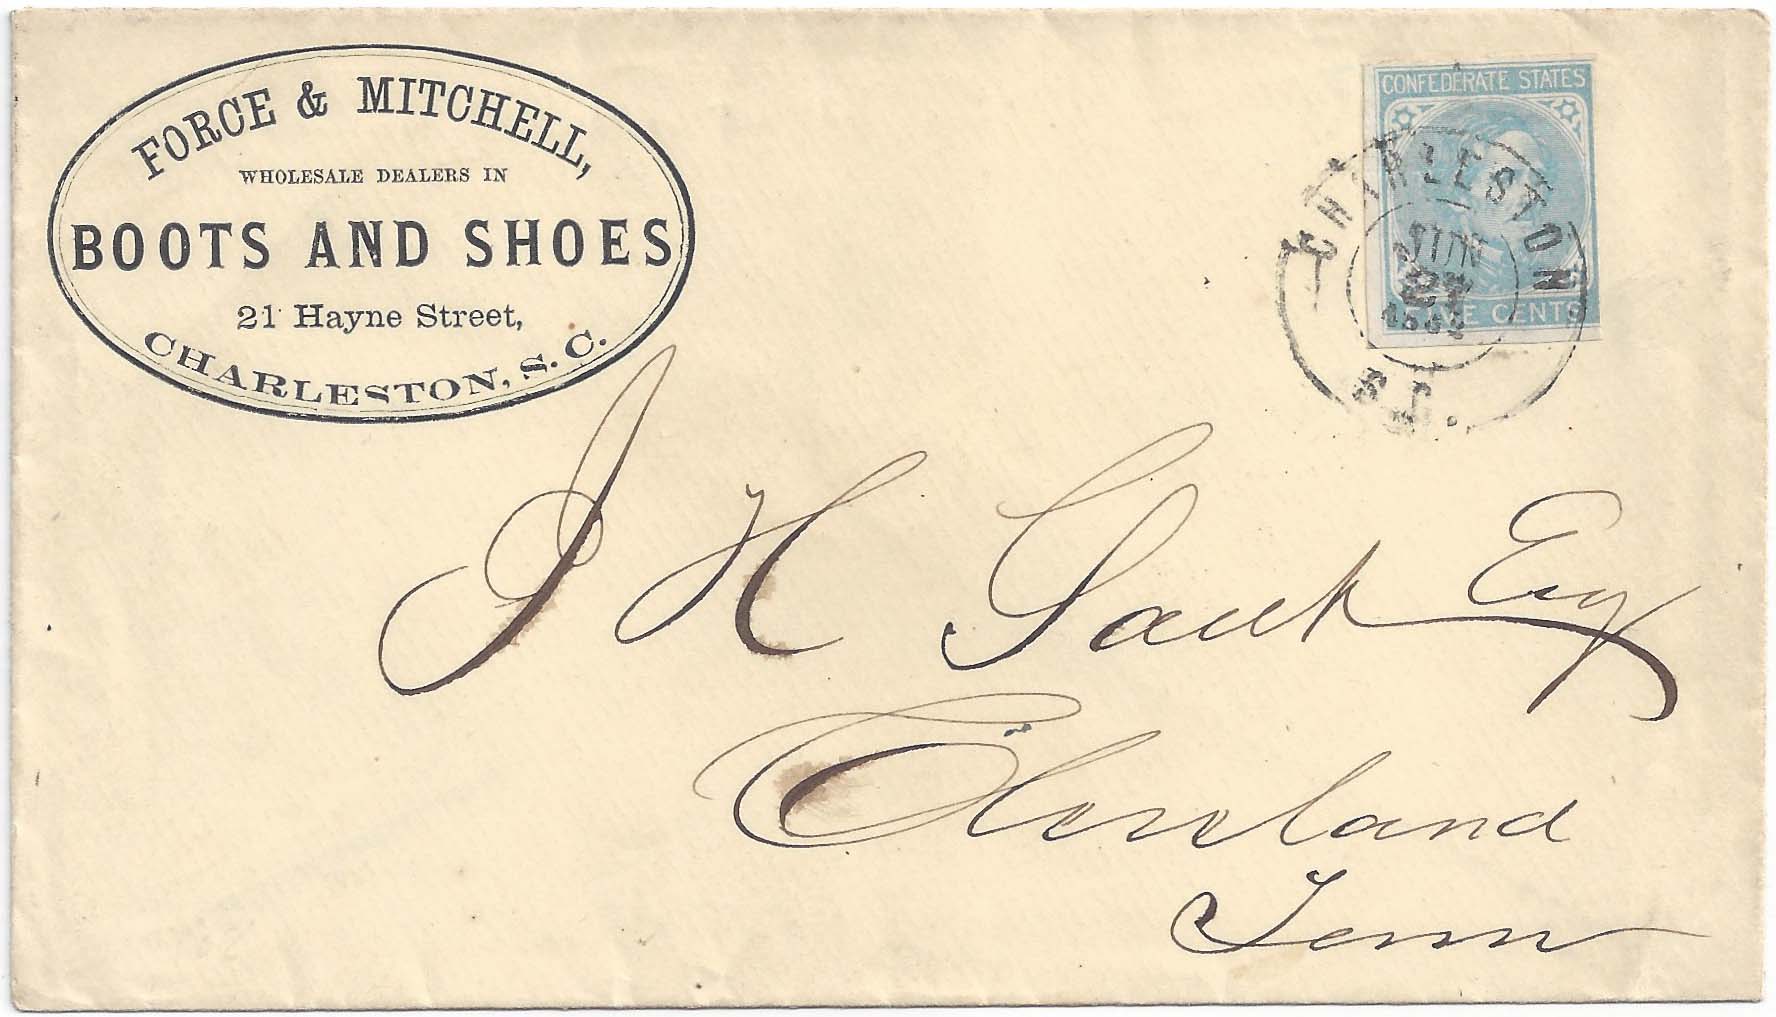 FORCE & MITCHELL,
WHOLESALE DEALERS IN
BOOTS AND SHOES
21 Hayne Street,
CHARLESTON, S. C.
CONFEDERATE STATES
FIVE CENTS
CHARLESTON
JUN
27
1862
S.C.
J H Gault Esq
Cleveland
Tenn